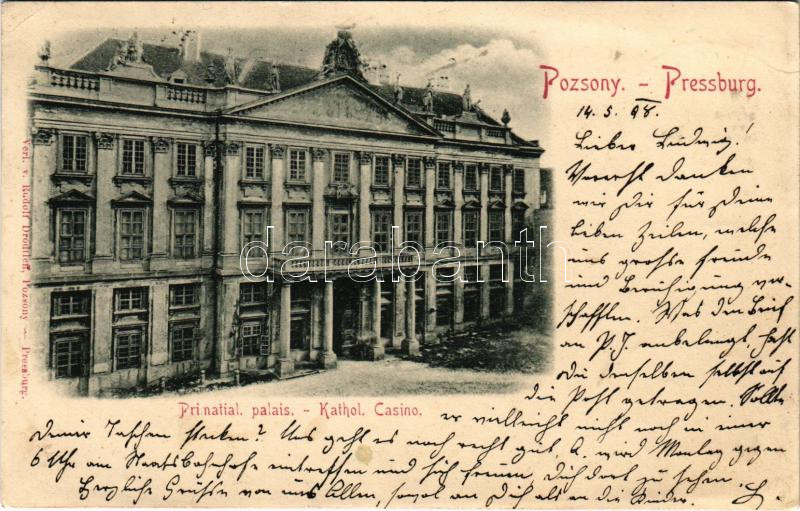 Pozsony. - Pressburg.
14. 5. 98.
Lieber Ludwig!
Vorerst danken
wir Dir für Deine
lieben Zeilen, welche
uns grosse Freude
und Beruhigung ver-
schafften. Was den Brief
an P. J. anbelangt, hast
Du denselben selbst auf
die Post getragen. Sollte
er vielleicht noch in einer
Deiner Taschen stecken? Uns geht es noch recht gut, A. wird Montag gegen
6 Uhr am Staatsbahnhofe eintreffen und sich freuen, Dich dort zu sehen.
Herzliche Grüsse von uns Allen, sowol an Dich als an die Kinder.
Primatial. palais. - Kathol. Casino.
Verl. v. Rudolf Drodtleff, Pozsony - Pressburg.
darabanth